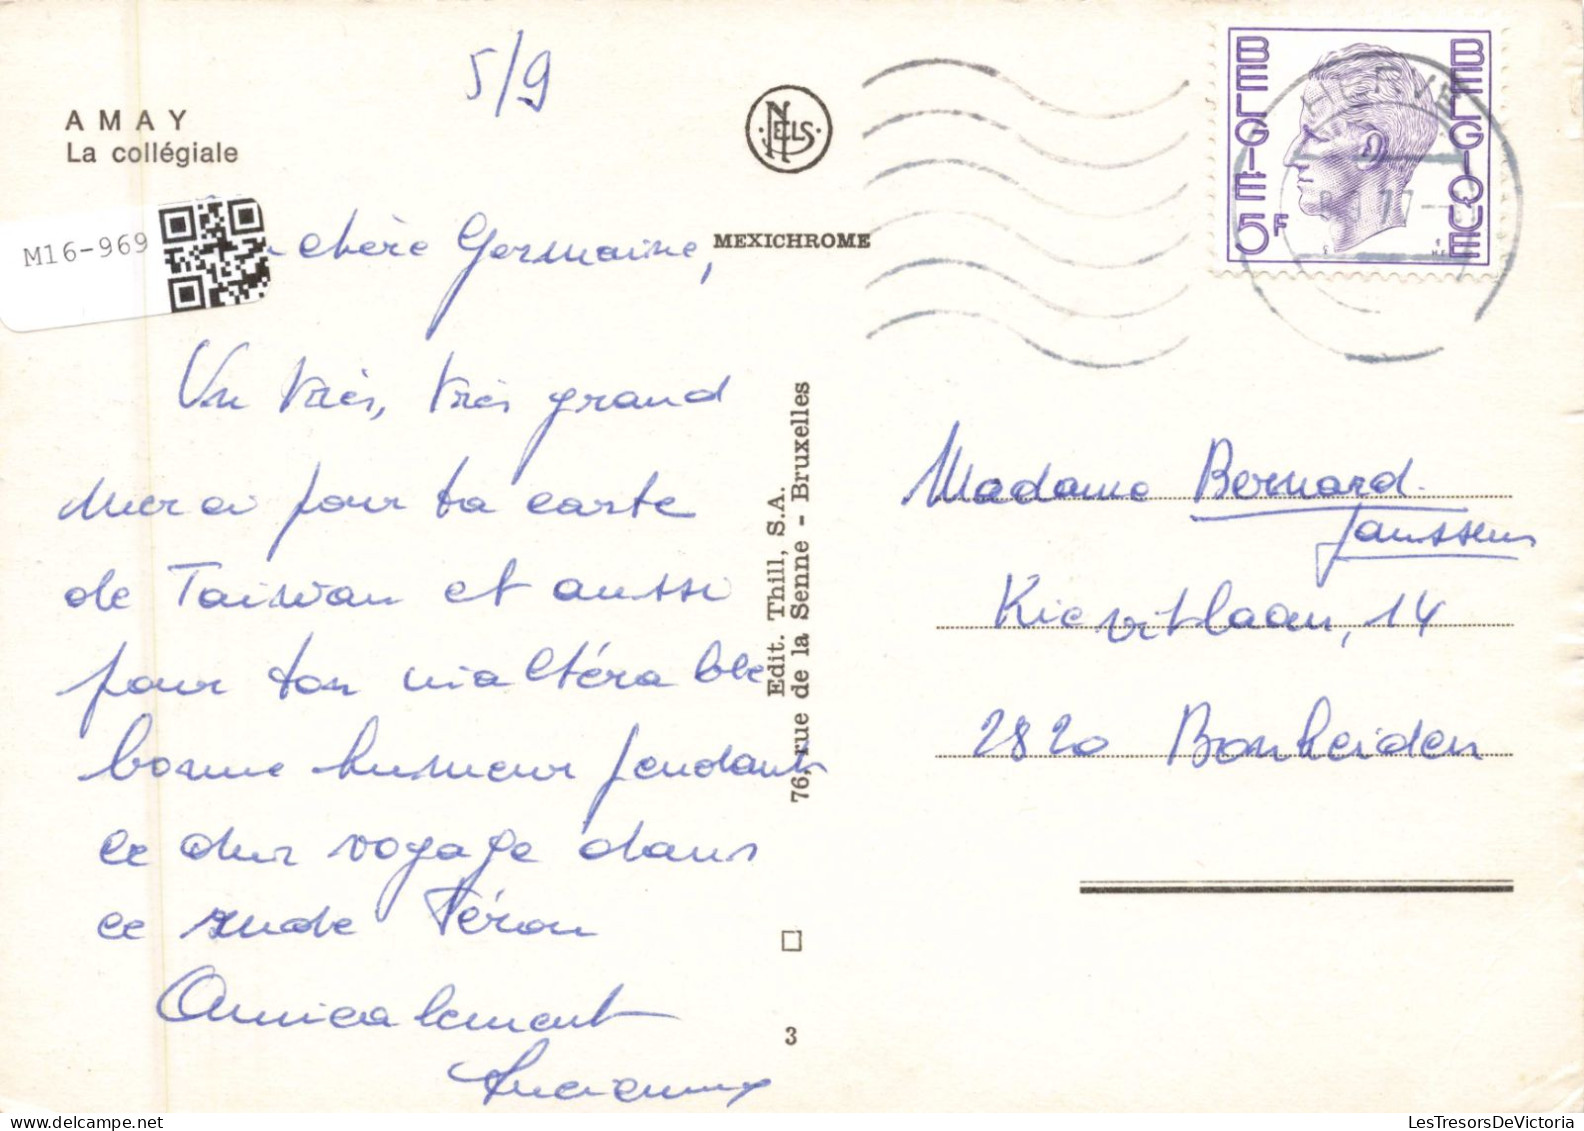 5/9
AMAY
La collégiale
NELS
M16-969
chère Germaine,
MEXICHROME
BELGIE 5F BELGIQUE
HERVE
77
Un très, très grand
Merci pour ta carte
de Taiwan et aussi
pour ton inaltérable
bonne humeur pendant
ce dur voyage dans
ce rude Péron
Amicalement
Edit. Thill, S.A.
76, rue de la Senne - Bruxelles
3
Madame Bernard
Janssens
Kievitlaan, 14
2820 Bonheiden
LesTresorsDeVictoria.com